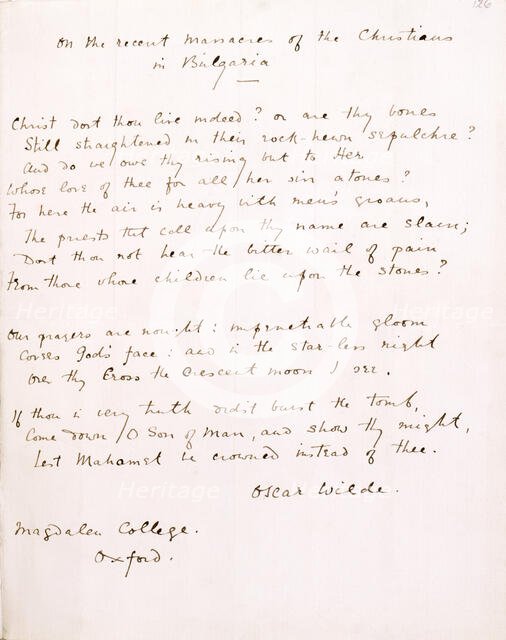 126
On the recent massacres of the Christians
in Bulgaria
Christ dost thou live indeed? or are thy bones
Still straightened in their rock-hewn sepulchre?
And do we owe thy rising but to Her
Whose love of thee for all her sin atones?
For here the air is heavy with men's groans,
The priests that call upon thy name are slain;
Dost thou not hear the bitter wail of pain
From those whose children lie upon the stones?
Our prayers are nought: impenetrable gloom
Covers God's face: and in the star-less night
Over thy Cross the Crescent moon I see.
If thou in very truth didst burst the tomb,
Come down, O Son of Man, and show thy might,
Lest Mahomet be crowned instead of thee.
Oscar Wilde.
Magdalen College.
Oxford.
Heritage
Heritage
Heritage
Heritage
Heritage
Heritage